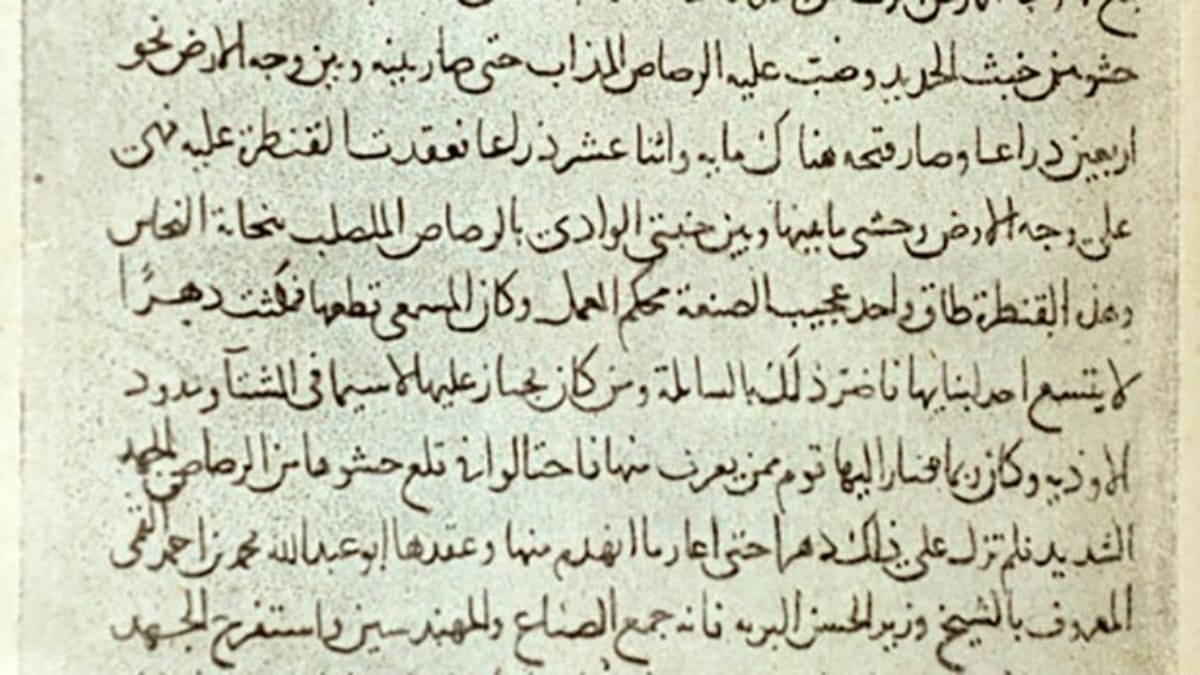 حشو من خبث الحديد وصب عليه الرصاص المذاب حتى صار بينه وبين وجه الارض نحو
اربعين ذراعا وصار فتحه هناك مايه واثنا عشر ذراعا فعقدت القنطرة عليه فهى
على وجه الارض وحشى ما بينها وبين جنبتى الوادى بالرصاص الملصلب بنحاتة النحاس
وهذه القنطرة طاق واحد عجيب الصنعة محكم العمل وكان المسمعى قطعها فمكثت دهرًا
لا يتسع احد لبنايها فاضر ذلك بالسابلة ومن كان يجتاز عليها لا سيما فى الشتآ ومدود
الاوديه وكان ربما صار اليها قوم ممن يعرف منها فاحتالوا فى قلع حشوها من الرصاص بالجهد
الشديد فلم تزل على ذلك دهرا حتى اعاد ما انهدم منها وعقدها ابو عبد الله محمد بن احمد القمى
المعروف بالشيخ وزير الحسن البويه فانه جمع الصناع والمهندسين واستفرغ الجهد